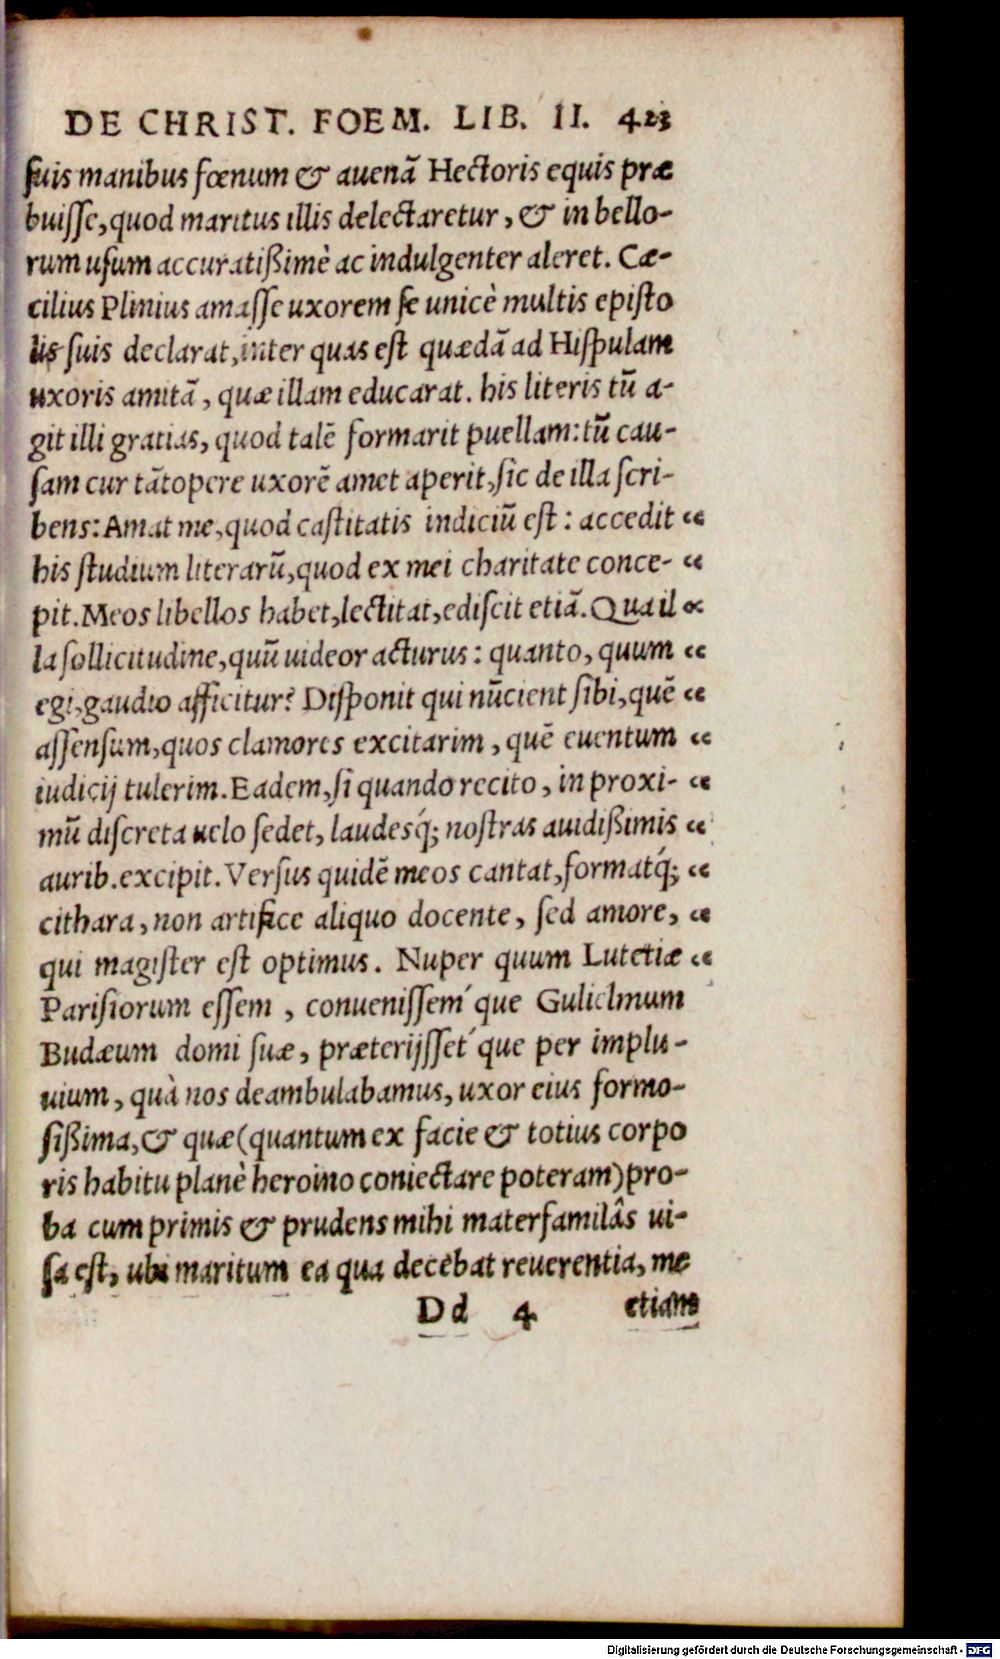 DE CHRIST. FOEM. LIB. II. 423
suis manibus fœnum & auenã Hectoris equis præ
buisse, quod maritus illis delectaretur, & in bello-
rum usum accuratißimè ac indulgenter aleret. Cæ-
cilius Plinius amasse uxorem se unicè multis episto
lis suis declarat, inter quas est quædã ad Hispulam
uxoris amitã, quæ illam educarat. his literis tũ a-
git illi gratias, quod talẽ formarit puellam: tũ cau-
sam cur tãtopere uxorẽ amet aperit, sic de illa scri-
bens: Amat me, quod castitatis indiciũ est: accedit “
his studium literarũ, quod ex mei charitate conce- “
pit. Meos libellos habet, lectitat, ediscit etiã. Qua il “
la sollicitudine, quũ uideor acturus: quanto, quum “
egi, gaudio afficitur? Disponit qui nũcient sibi, quẽ “
assensum, quos clamores excitarim, quẽ euentum “
iudicij tulerim. Eadem, si quando recito, in proxi- “
mũ discreta uelo sedet, laudesq́; nostras auidißimis “
aurib. excipit. Versus quidẽ meos cantat, formatq́; “
cithara, non artifice aliquo docente, sed amore, “
qui magister est optimus. Nuper quum Lutetiæ “
Parisiorum essem, conuenissem´que Gulielmum
Budæum domi suæ, præterijsset´que per implu-
uium, quà nos deambulabamus, uxor eius formo-
sißima, & quæ (quantum ex facie & totius corpo
ris habitu planè heroino coniectare poteram) pro-
ba cum primis & prudens mihi materfamiliâs ui-
sa est, ubi maritum ea qua decebat reuerentia, me
Dd 4 etiam
Digitalisierung gefördert durch die Deutsche Forschungsgemeinschaft - DFG